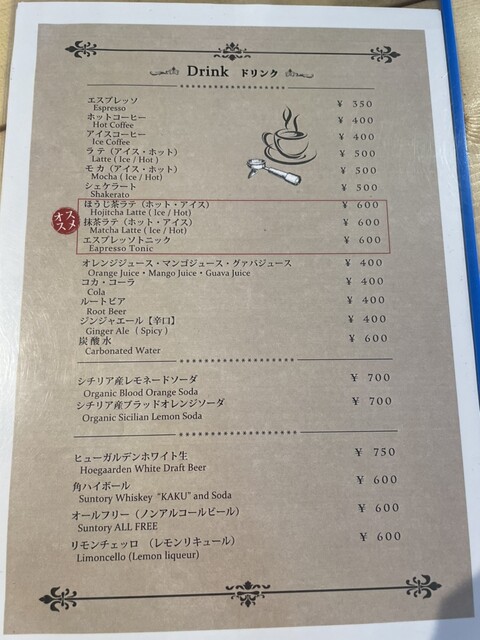 Drink ドリンク
エスプレッソ ¥ 350
Espresso
ホットコーヒー ¥ 400
Hot Coffee
アイスコーヒー ¥ 400
Ice Coffee
ラテ（アイス・ホット） ¥ 500
Latte ( Ice / Hot )
モカ（アイス・ホット） ¥ 500
Mocha ( Ice / Hot)
シェケラート ¥ 500
Shakerato
オススメ
ほうじ茶ラテ（ホット・アイス） ¥ 600
Hojitcha Latte ( Ice / Hot)
抹茶ラテ（ホット・アイス） ¥ 600
Matcha Latte ( Ice / Hot)
エスプレッソトニック ¥ 600
Eapresso Tonic
オレンジジュース・マンゴジュース・グァバジュース ¥ 400
Orange Juice・Mango Juice・Guava Juice
コカ・コーラ ¥ 400
Cola
ルートビア ¥ 400
Root Beer
ジンジャエール【辛口】 ¥ 400
Ginger Ale ( Spicy )
炭酸水 ¥ 600
Carbonated Water
シチリア産レモネードソーダ ¥ 700
Organic Blood Orange Soda
シチリア産ブラッドオレンジソーダ ¥ 700
Organic Sicilian Lemon Soda
ヒューガルデンホワイト生 ¥ 750
Hoegaarden White Draft Beer
角ハイボール ¥ 600
Suntory Whiskey "KAKU" and Soda
オールフリー（ノンアルコールビール） ¥ 600
Suntory ALL FREE
リモンチェッロ （レモンリキュール） ¥ 600
Limoncello (Lemon liqueur)